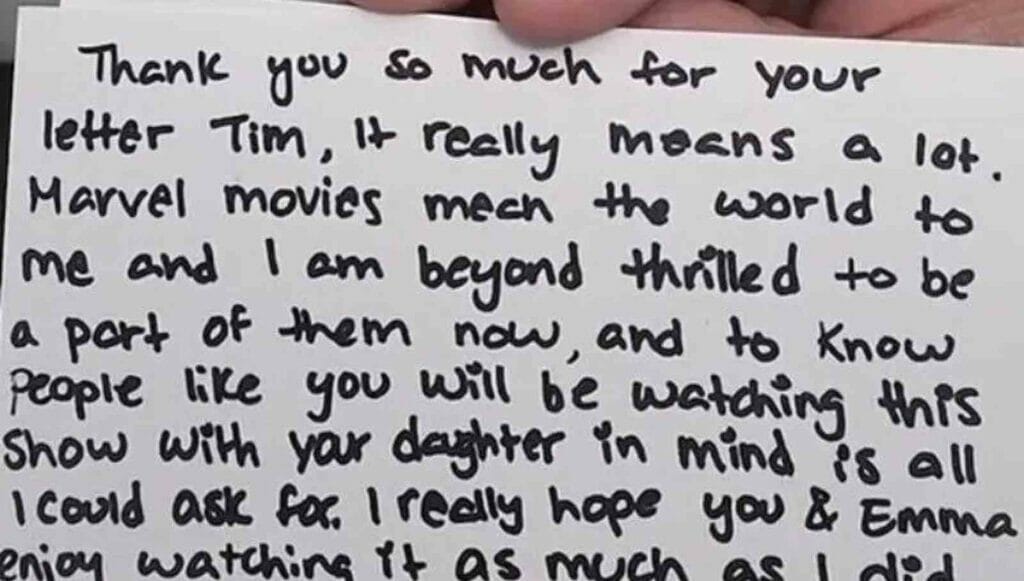 Thank you so much for your
letter Tim, It really means a lot.
Marvel movies mean the world to
me and I am beyond thrilled to be
a part of them now, and to know
people like you will be watching this
show with your daughter in mind is all
I could ask for. I really hope you & Emma
enjoy watching it as much as I did